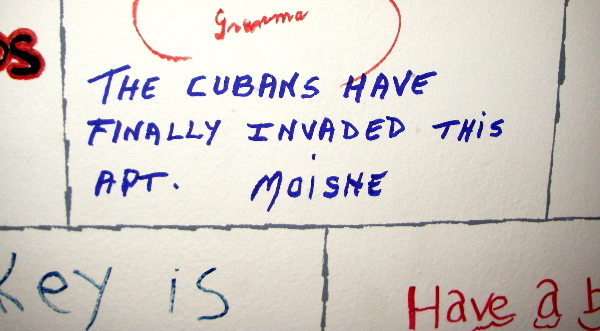 Gramma
THE CUBANS HAVE
FINALLY INVADED THIS
APT. MOISHE
Key is
Have a